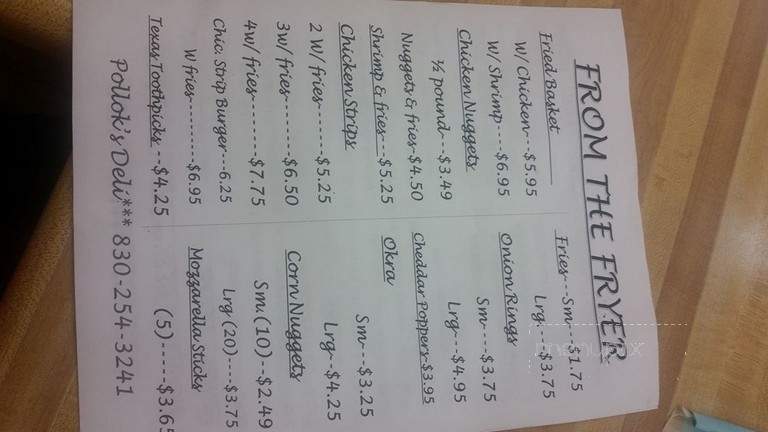 FROM THE FRYER
Fried Basket
W/ Chicken---$5.95
W/ Shrimp----$6.95
Chicken Nuggets
½ pound---$3.49
Nuggets & fries-$4.50
Shrimp & fries---$5.25
Chicken Strips
2 W/ fries------$5.25
3w/ fries-------$6.50
4w/ fries-------$7.75
Chic. Strip Burger---6.25
W fries---------$6.95
Texas Toothpicks --$4.25
Fries---Sm---$1.75
Lrg---$3.75
Onion Rings
Sm----$3.75
Lrg---$4.95
Cheddar Poppers-$3.95
Okra
Sm---$3.25
Lrg--$4.25
Corn Nuggets
Sm.(10)--$2.49
Lrg.(20)---$3.75
Mozzarella Sticks
(5)----$3.65
Pollok's Deli*** 830-254-3241